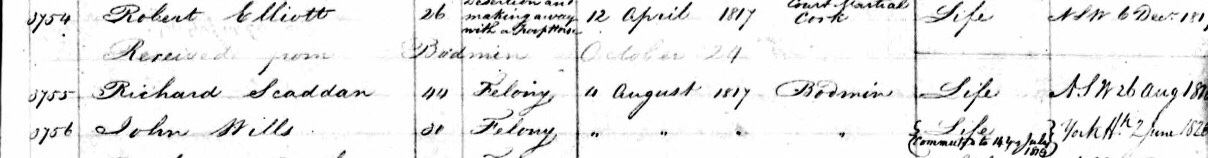 3754 Robert Elliott 26 Desertion and making away with a Troop Horse 12 April 1817 Court Martial Cork Life NSW 6 Decr
Received from Bodmin October 24
3755 Richard Scaddan 44 Felony 4 August 1817 Bodmin Life NSW 26 Aug
3756 John Wills 31 Felony " " " " Life York Hk 2 June 1826
Commuted to 14 Ys July